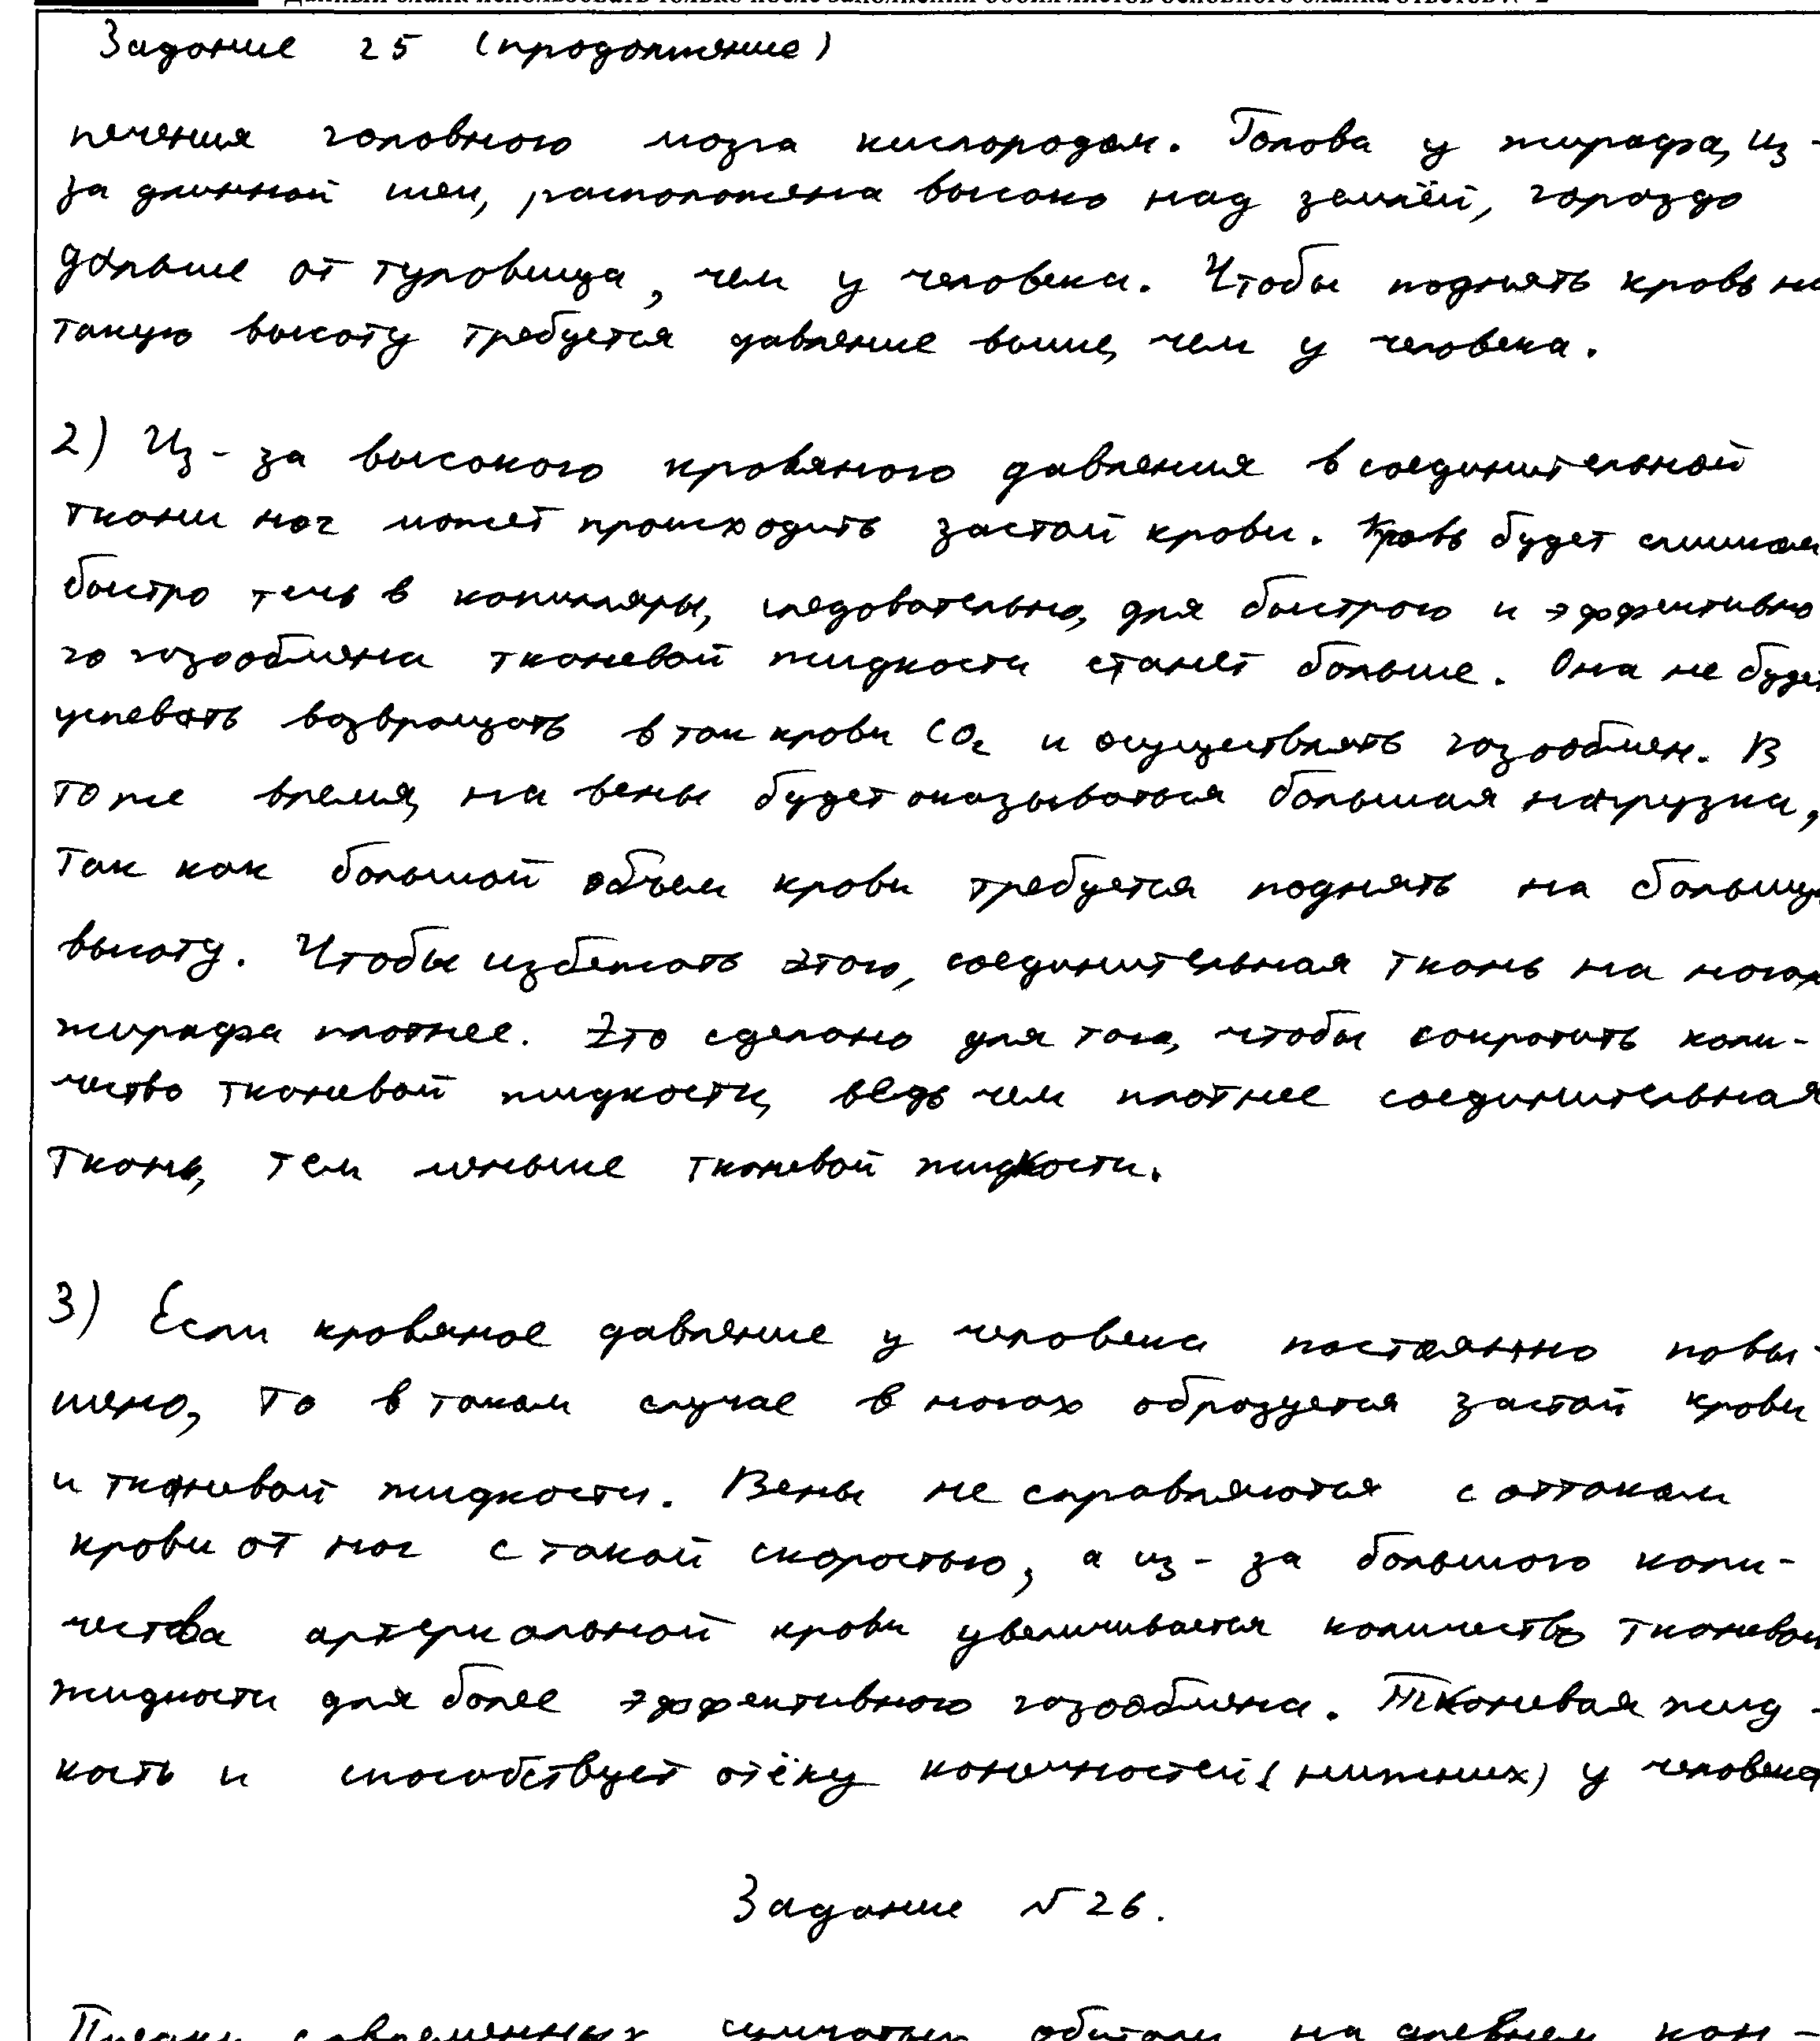 Данный бланк использовать только после заполнения обоих листов основного бланка ответов № 2
Задание 25 (продолжение)
печения головного мозга кислородом. Голова у жирафа, из-
за длинной шеи, расположена высоко над землёй, гораздо
дальше от туловища, чем у человека. Чтобы поднять кровь на
такую высоту требуется давление выше, чем у человека.
2) Из-за высокого кровяного давления в соединительной
ткани ног может происходить застой крови. Кровь будет слишком
быстро течь в капилляры, следовательно, для быстрого и эффективно
го газообмена тканевой жидкости станет больше. Она не будет
успевать возвращать в ток крови CO₂ и осуществлять газообмен. В
то же время, на вены будет оказываться большая нагрузка,
так как большой объем крови требуется поднять на большую
высоту. Чтобы избежать этого, соединительная ткань на ногах
жирафа плотнее. Это сделано для того, чтобы сократить коли-
чество тканевой жидкости, ведь чем плотнее соединительная
ткань, тем меньше тканевой жидкости.
3) Если кровяное давление у человека постоянно повы-
шено, то в таком случае в ногах образуется застой крови
и тканевой жидкости. Вены не справляются с оттоком
крови от ног с такой скоростью, а из-за большого коли-
чества артериальной крови увеличивается количество тканевой
жидкости для более эффективного газообмена. Тканевая жид-
кость и способствует отёку конечностей (нижних) у человека
Задание №26.
Предки современных сумчатых обитали на древнем кон-